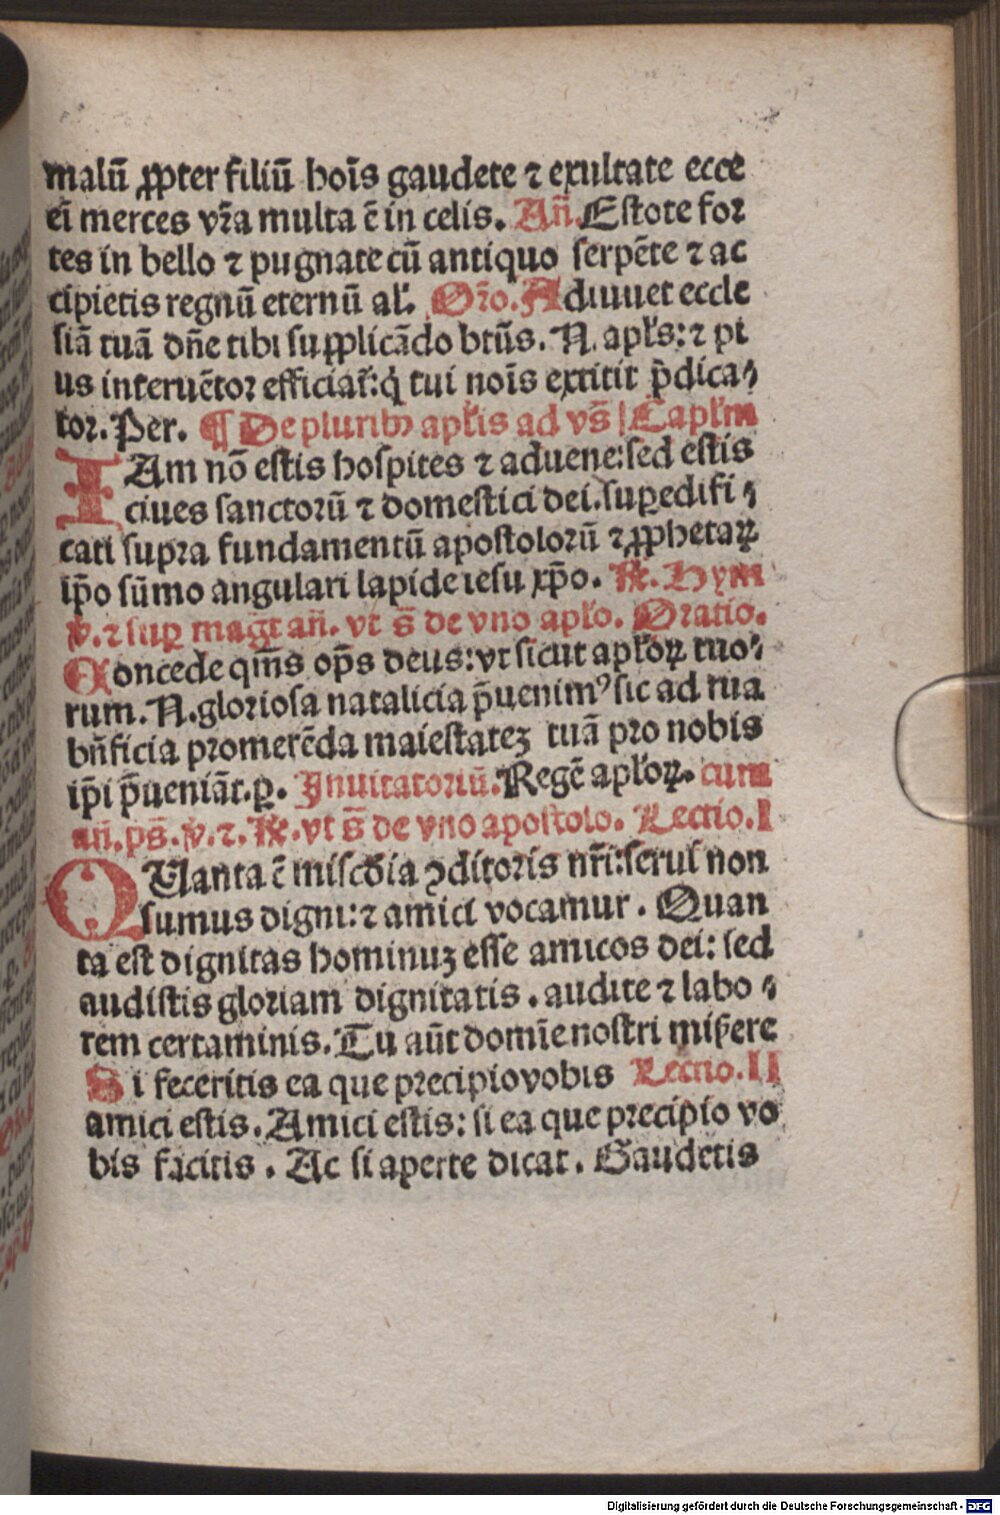 malū ꝓpter filiū hoīs gaudete ⁊ exultate ecce
ei merces vr̄a multa ē in celis. Añ. Estote for
tes in bello ⁊ pugnate cū antiquo serpēte ⁊ ac
cipietis regnū eternū al'. Or̄o. Adiuuet eccle
siā tuā dn̄e tibi supplicādo btūs. N. apl's: ⁊ pi
us interuētor efficiat᷑: q̇ tui noīs extitit p̄dica⸗
tor. Per. ¶ De pluribꝫ apl'is ad vs̄ | Capl'm
IAm nō estis hospites ⁊ aduene: sed estis
ciues sanctorū ⁊ domestici dei. suꝑedifi⸗
cati supra fundamentū apostolorū ⁊ ꝓphetaꝝ
ip̄o sūmo angulari lapide iesu xp̄o. ℞. Hym
v̄. ⁊ suꝑ magt̄ añ. vt s̄ de vno aplo. Oratio.
Concede qm̄s op̄s deus: vt sicut apl'oꝝ tuo⸗
rum. N. gloriosa natalicia p̄uenimꝰ sic ad tua
bn̄ficia promerēda maiestateꝫ tuā pro nobis
ip̄i p̄ueniāt. ꝑ. Inuitatoriū. Regē apl'oꝝ. cum
añ. ps̄. v̄. ⁊. ℞. vt s̄ de vno apostolo. Lectio. I
QUanta ē misc̄dia ꝯditoris nr̄i: serui non
sumus digni: ⁊ amici vocamur. Quan
ta est dignitas hominuꝫ esse amicos dei: sed
audistis gloriam dignitatis. audite ⁊ labo⸗
rem certaminis. Tu aūt domīe nostri mis̄ere
Si feceritis ea que precipio vobis Lectio. II
amici estis. Amici estis: si ea que precipio vo
bis facitis. Ac si aperte dicat. Gaudetis
Digitalisierung gefördert durch die Deutsche Forschungsgemeinschaft - DFG